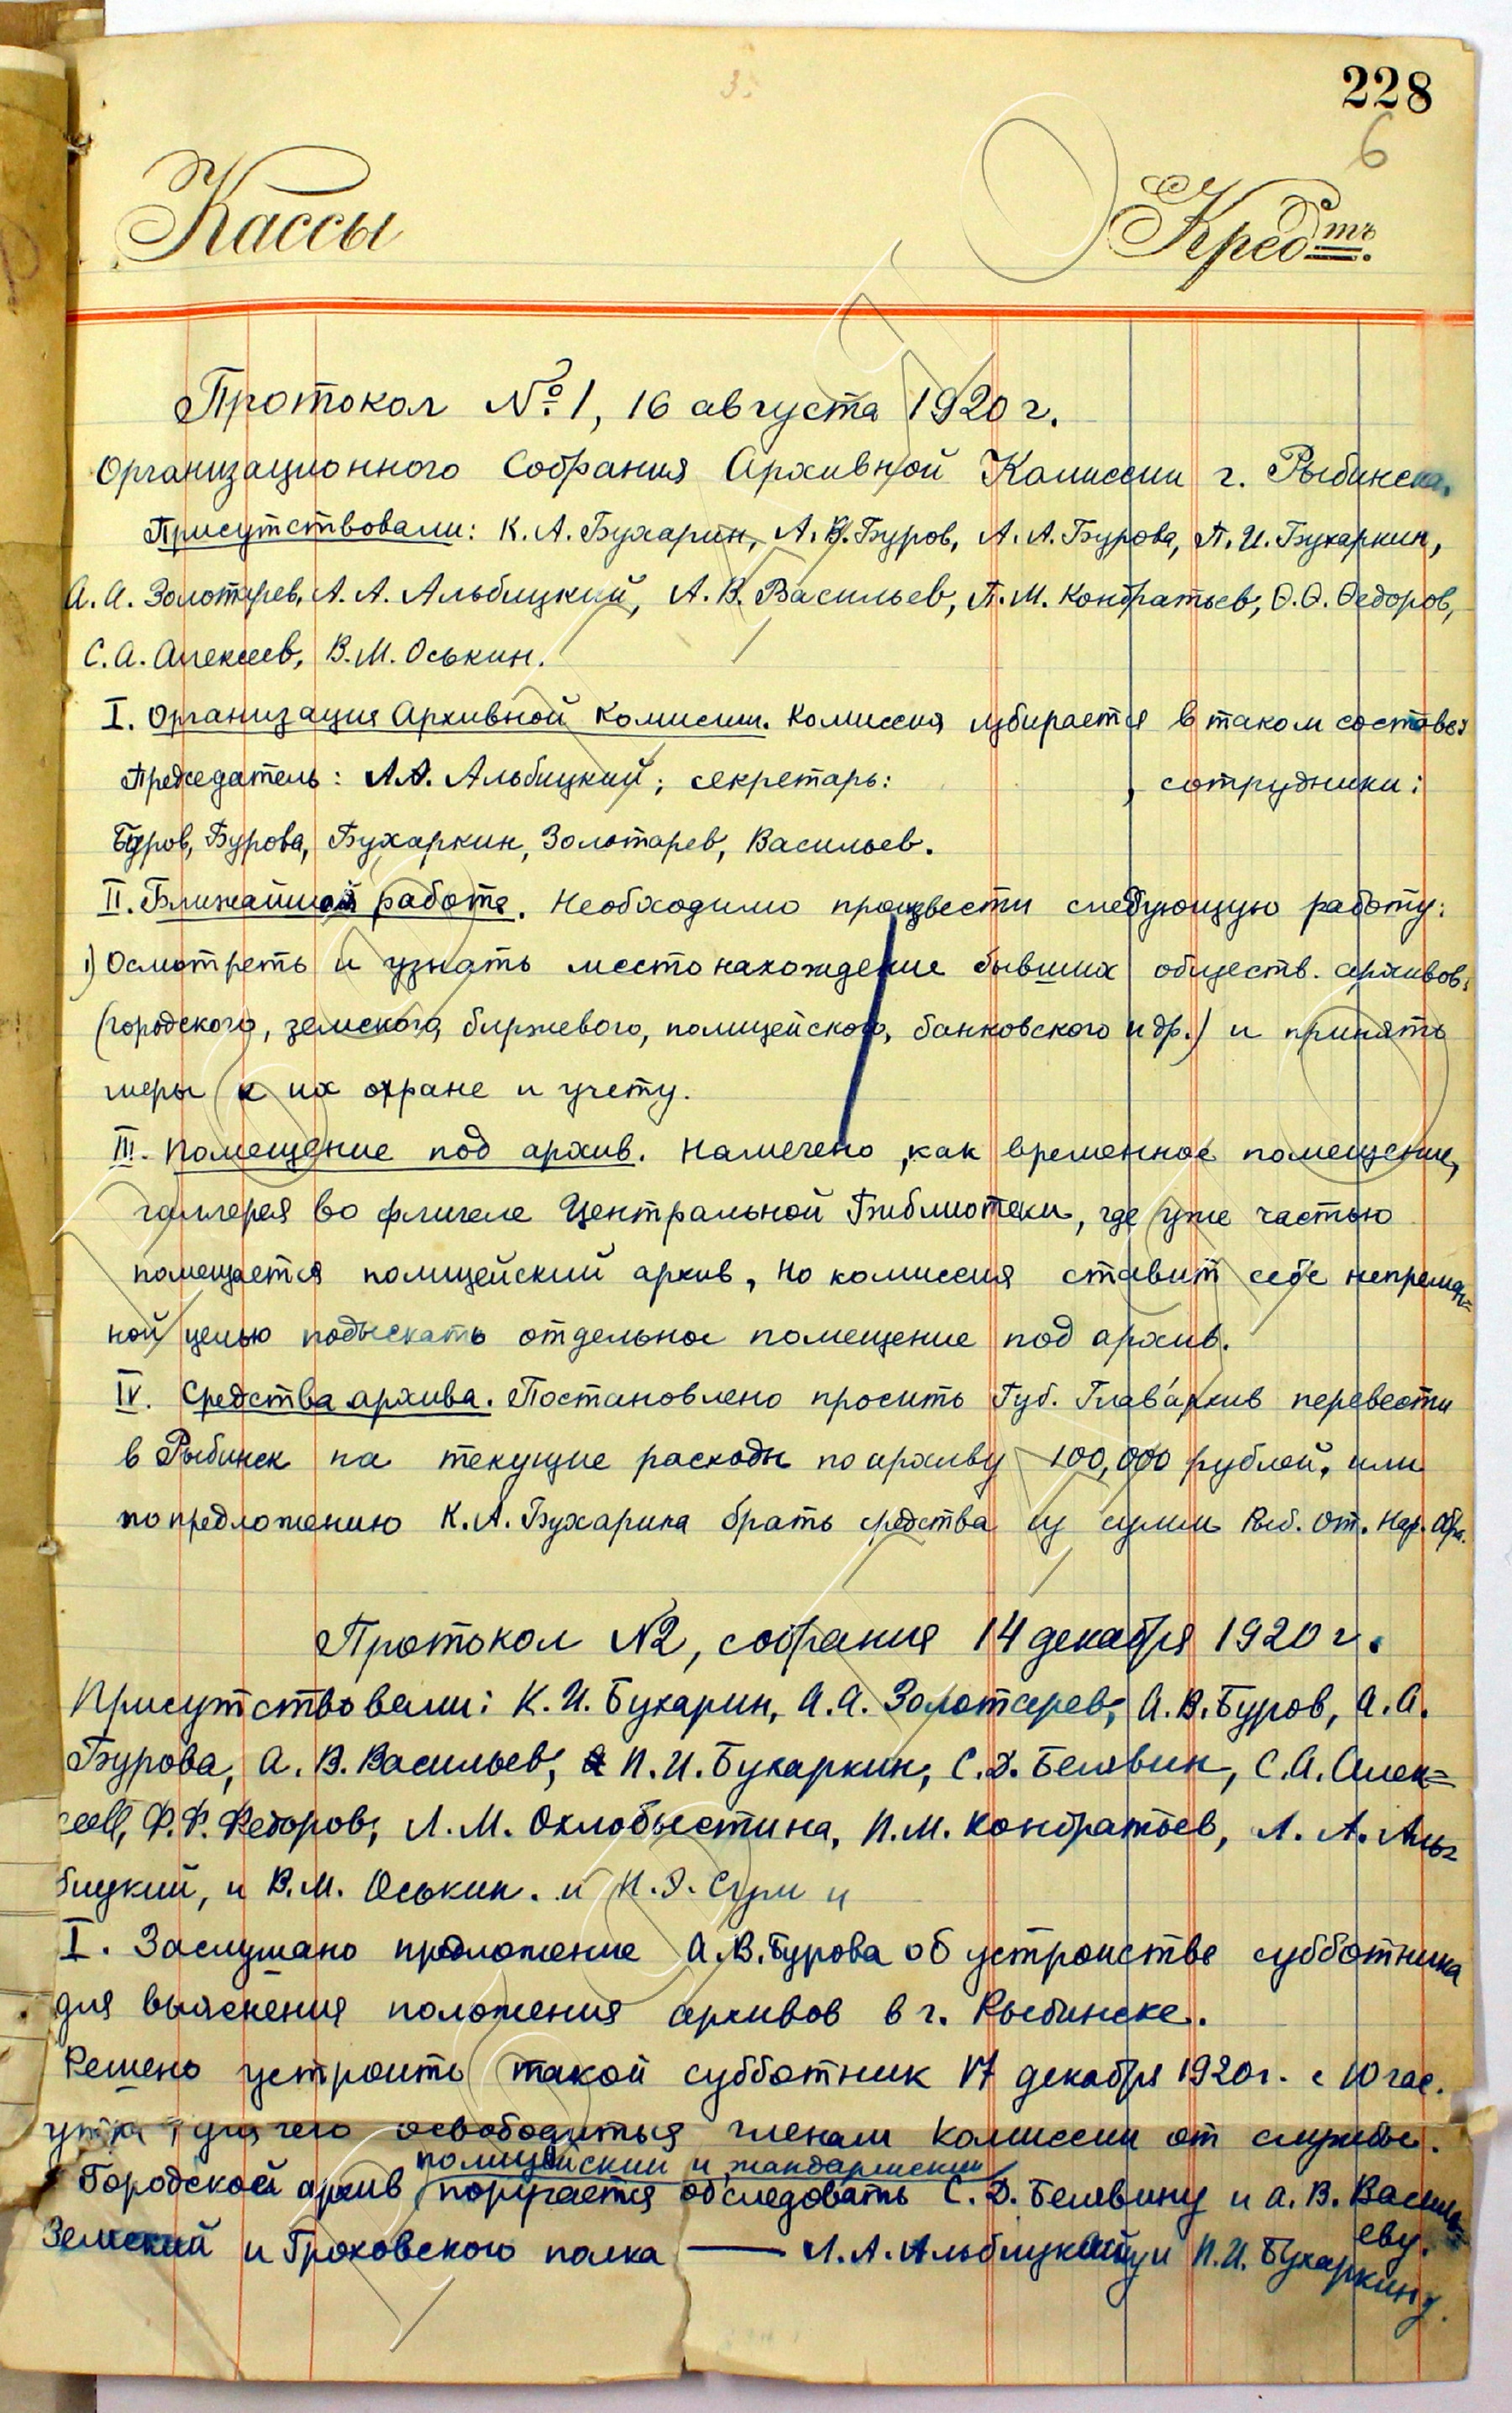 228
6
Кассы
Кредтъ.
Протокол №1, 16 августа 1920 г.
Организационного Собрания Архивной Комиссии г. Рыбинска.
Присутствовали: К. А. Бухарин, А. В. Буров, А. А. Бурова, П. И. Бухаркин,
А. А. Золотарев, Л. А. Альбицкий, А. В. Васильев, П. М. Кондратьев, Ѳ. Ѳ. Ѳедоров,
С. А. Алексеев, В. М. Оськин.
I. Организация Архивной Комиссии. Комиссия избирается в таком составе:
Председатель: Л. А. Альбицкий; секретарь: , сотрудники:
Буров, Бурова, Бухаркин, Золотарев, Васильев.
II. Ближайшая работа. Необходимо произвести следующую работу:
1) Осмотреть и узнать местонахождение бывших обществ. архивов:
(городского, земского, биржевого, полицейского, банковского и др.) и принять
меры к их охране и учету.
III. Помещение под архив. Намечено, как временное помещение,
галлерея во флигеле Центральной Библиотеки, где уже частью
помещается полицейский архив, но комиссия ставит себе непремен=
ной целью подыскать отдельное помещение под архив.
IV. Средства архива. Постановлено просить Губ. Главархив перевести
в Рыбинск на текущие расходы по архиву 100,000 рублей, или
по предложению К. А. Бухарина брать средства из сумм Рыб. От. Нар. Обра.
Протокол №2, собрания 14 декабря 1920 г.
Присутствовали: К. И. Бухарин, А. А. Золотарев, А. В. Буров, А. А.
Бурова, А. В. Васильев, П. И. Бухаркин, С. Д. Белявин, С. А. Алек=
сеев, Ф. Ф. Федоров, Л. М. Охлобыстина, П. М. Кондратьев, Л. А. Аль=
бицкий, и В. М. Оськин. и
I. Заслушано предложение А. В. Бурова об устроистве субботника
для выяснения положения архивов в г. Рыбинске.
Решено устроить такой субботник 17 декабря 1920 г. с 10 час.
утра, для чего освободиться членам комиссии от службы.
полицейский и жандармский
Городской архив поручается обследовать С. Д. Белявину и А. В. Василь=
еву.
Земский и Гроховского полка — Л. А. Альбицкому и П. И. Бухаркину.